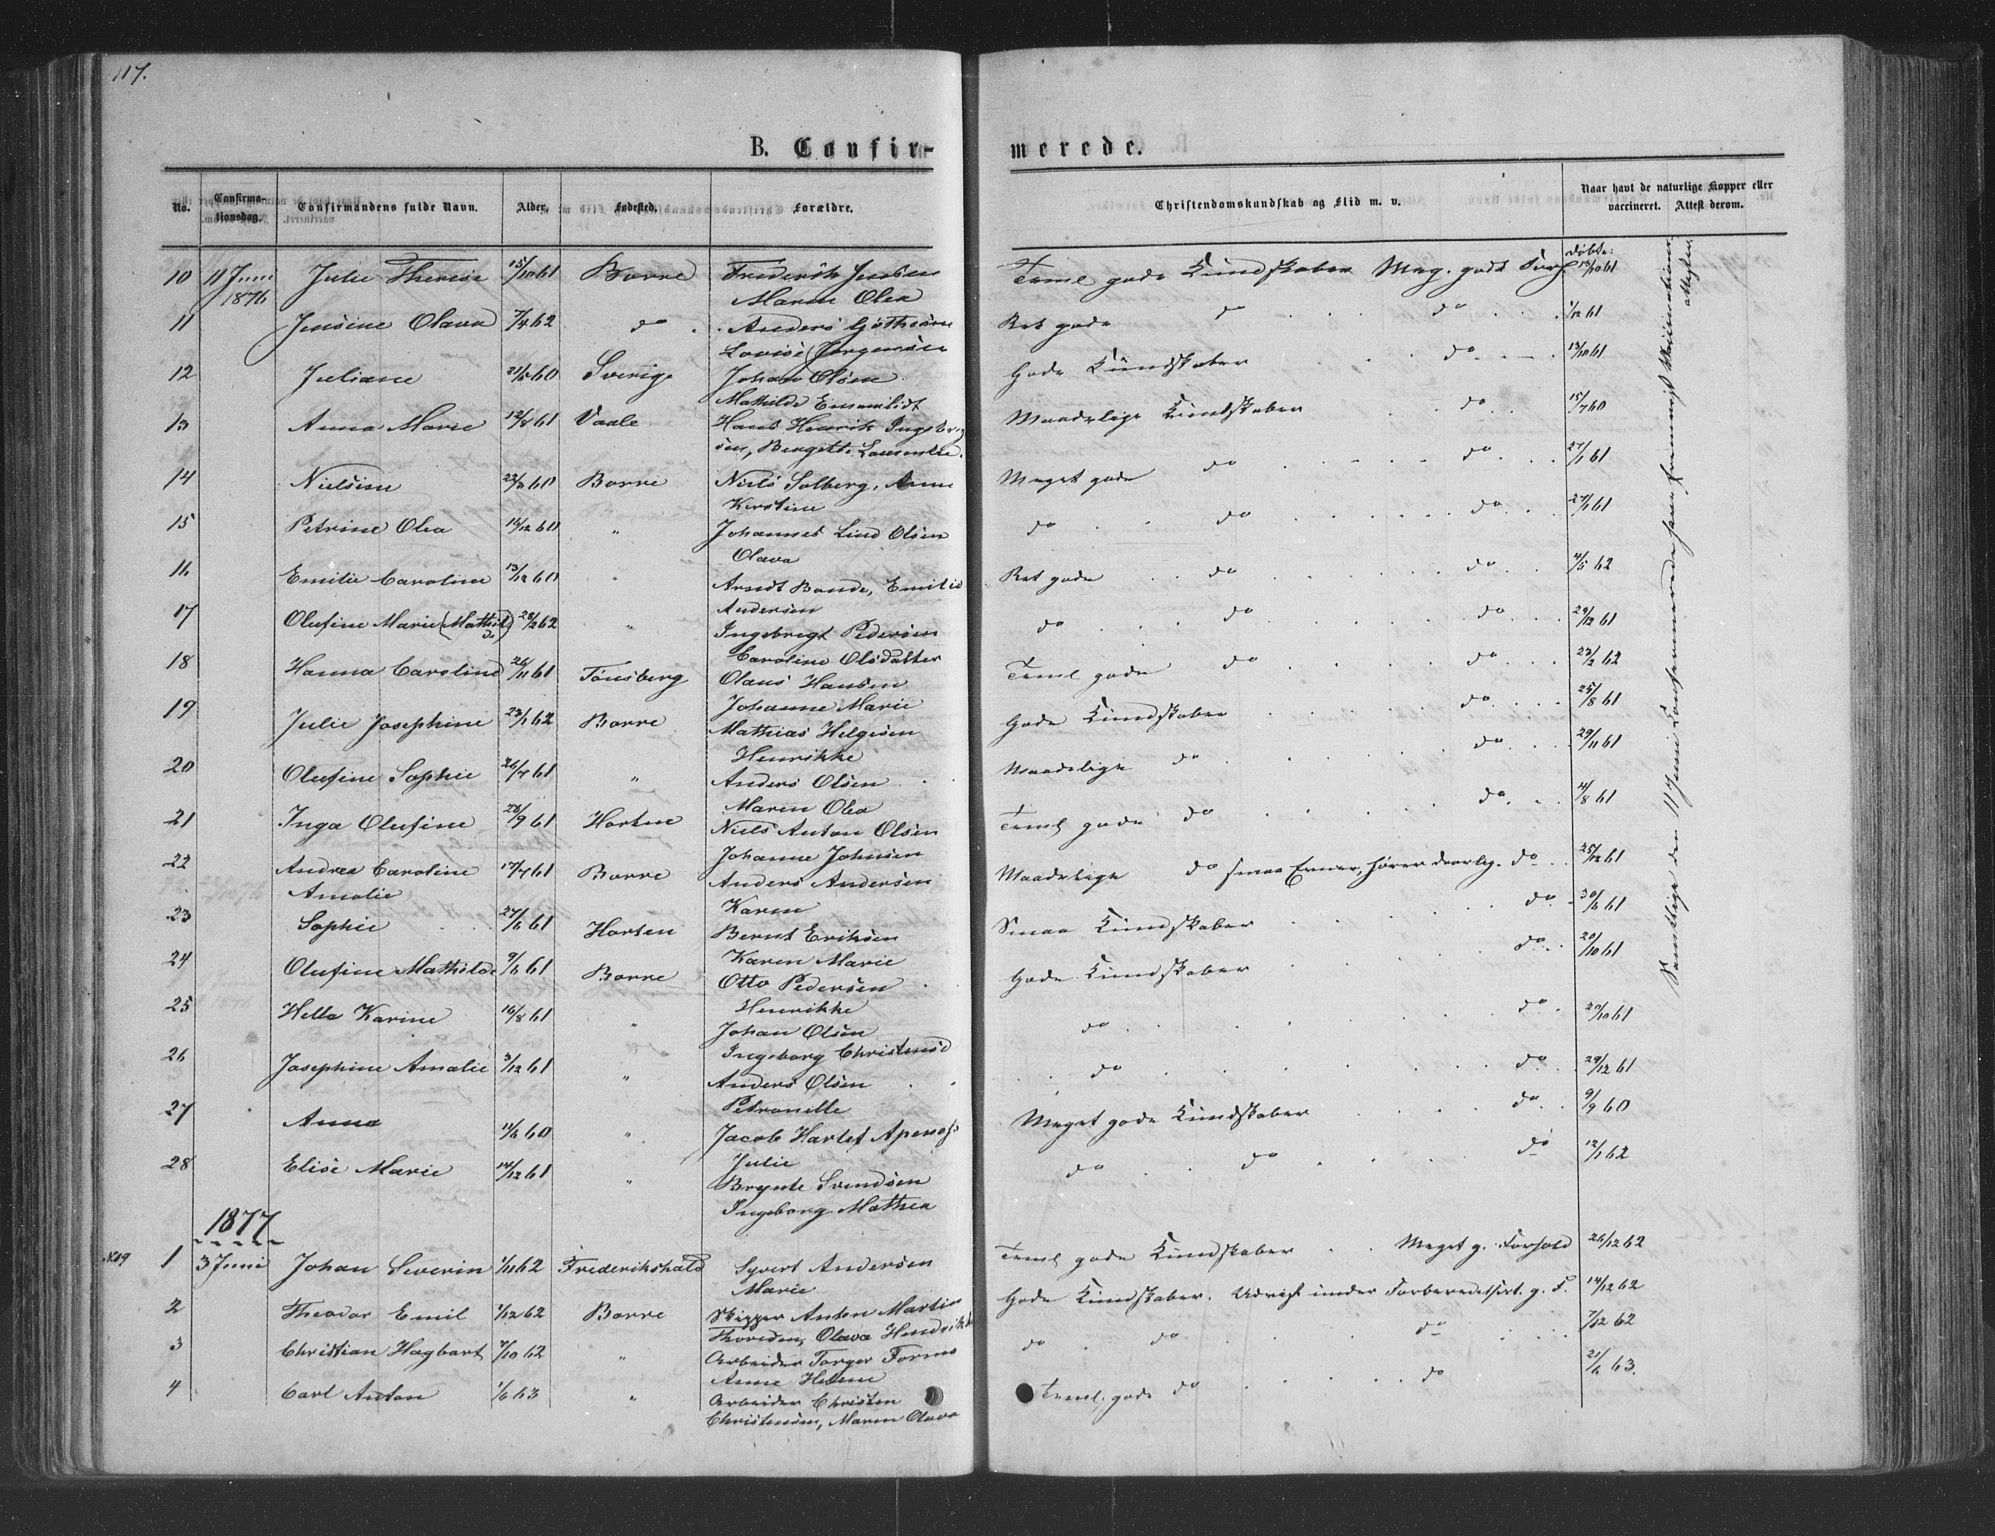 117.
B. Confir-
merede.
No. Confirma-tionsdag. Confirmandens fulde Navn. Alder. Fødested. Forældre. Christendomskundskab og Flid m. v. Naar havt de naturlige Kopper eller vaccineret. Attest derom.
Døbte:
10 11 Juni 1876 Julie Therese 15/10 61 Borre Frederik Jensen Teml gode Kundskaber Meg. godt 13/10 61
Maren Olea
11 Jensine Olava 7/4 62 do Anders Ret gode do do 1/12 61
Lovise Jørgensen
12 Juliane 21/5 60 Sverige Johan Olsen Gode Kundskaber do 13/10 61
Mathilde
13 Anna Marie 12/8 61 Vaale Hans Henrik Maadelige Kundskaber do 15/7 60
14 Nielsine Borre Niels Solberg, Anne Meget gode do do 27/1 61
Kirstine
15 Petrine Olea 13/12 60 " Johannes Lind Olsen do do do 27/1 61
Olava
16 Emilie Caroline 13/12 60 " Arndt Bande, Emilie Ret gode do do 4/5 62
Andersen
17 Olufine Marie (Mathilde) 28/2 62 " Ingebregt Pedersen do do do 29/12 61
Caroline Olsdatter
18 Hanna Caroline 26/11 61 Tønsberg Olaus Hansen Teml gode do do 23/2 62
Johanne Marie
19 Julie Josephine 23/1 62 Borre Mathias Helgesen Gode Kundskaber do 25/8 61
Henrikke
20 Olufine Sophie 26/7 61 " Anders Olsen Maadelige do do 29/11 61
Maren Olea
21 Inga Olufine 28/9 61 Horten Niels Anton Olsen Teml gode do do 4/8 61
Johanne Johnsen
22 Andrea Caroline Amalie 17/7 61 Borre Anders Andersen Maadelige do smaa Evner, hører daarlig. do 25/12 61
Karen
23 Sophie 27/6 61 Horten Bernt Eriksen Smaa Kundskaber do 30/6 61
Karen Marie
24 Olufine Mathilde 9/6 61 Borre Otto Pedersen Gode Kundskaber do 20/10 61
Henrikke
25 Helle Karine 16/8 61 " Johan Olsen do do 27/10 61
Ingeborg
26 Josephine Amalie 3/12 61 " Anders Olsen do do 29/12 61
Petronelle
27 Anna 11/6 60 " Jacob Meget gode Kundskaber do 9/9 60
Julie
28 Elise Marie 14/12 61 " Brynte Svendsen do do do 12/1 62
Ingeborg Mathea
Samtlige den 11 Juni
1877
1 3 Juni Johan Severin 1/11 62 Frederikshald Syvert Andersen Teml gode Kundskaber Meget g. Forhold 26/12 62
Marie
2 Theodor Emil 1/12 62 Borre Skipper Anton Martin Gode Kundskaber. Udvist under g. F. 14/12 62
Olava
3 Christian Hagbart 7/10 62 " Arbeider Torger do do do 7/12 62
Anne Helene
4 Carl Anton 1/6 63 " Arbeider Christen Teml. gode do do 21/6 63.
Christensen, Maren Olava